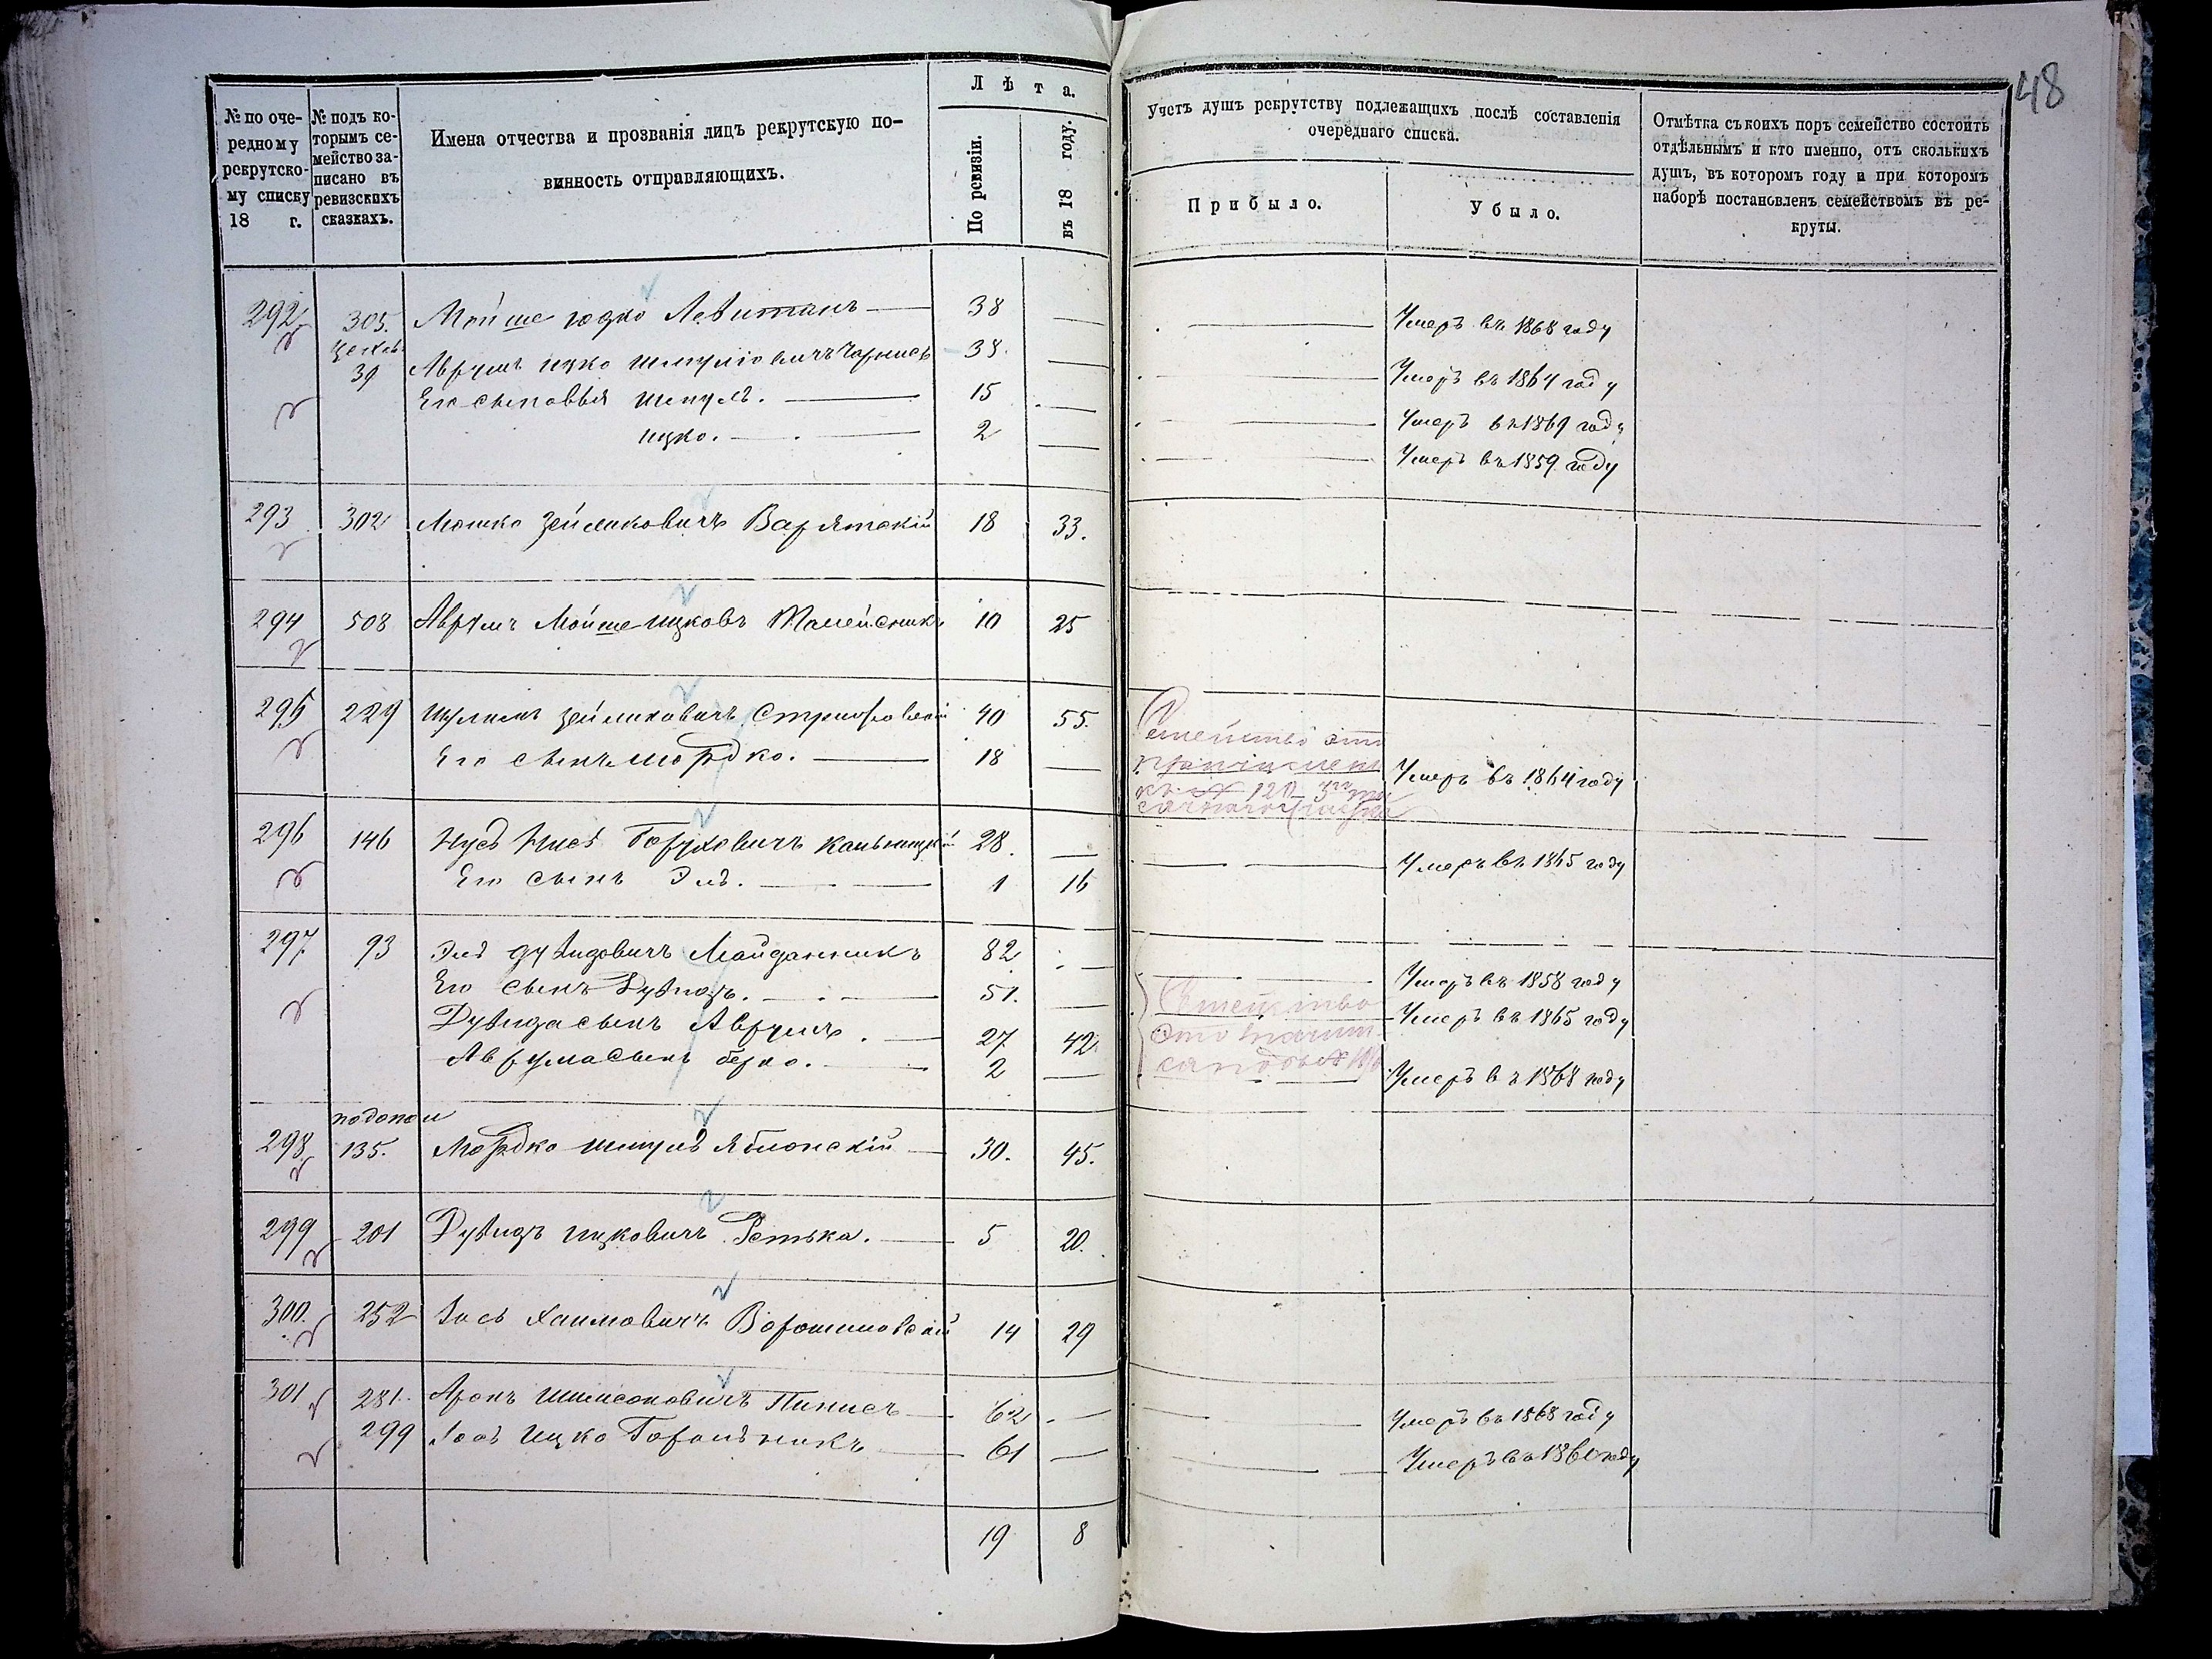 48
№ по оче-
редному
рекрутско-
му списку
18 г.
№ подъ ко-
торымъ се-
мейство за-
писано въ
ревизскихъ
сказкахъ.
Имена отчества и прозванія лицъ рекрутскую по-
винность отправляющихъ.
Лѣта.
По ревизіи.
въ 18 году.
Учетъ душъ рекрутству подлежащихъ послѣ составленія
очереднаго списка.
Прибыло.
Убыло.
Отмѣтка съ коихъ поръ семейство состоитъ
отдѣльнымъ и кто именно, отъ сколькихъ
душъ, въ которомъ году и при которомъ
наборѣ постановленъ семействомъ въ ре-
круты.
292 305. Мойше Юдко Левитанъ 38 Умеръ въ 1868 году
39 Аврумъ Ицко Шмулiовичъ 38. Умеръ въ 1864 году
Его сыновья Шмуль. 15 Умеръ въ 1869 году
Ицко. 2 Умеръ въ 1859 году
293 302 Мошко Зейликовичъ 18 33.
294 508 Аврумъ Мойше Ицковъ 10 25
295 229 Зейликовичъ 40 55. Семейство это
Его сынъ Мордко. 18 Умеръ въ 1864 году
къ № 120
296 146 Нусь Боруховичъ 28. Умеръ въ 1865 году
Его сынъ Эль. 1 16
297 93 Эль Дувидовичъ Майданникъ 82 Умеръ въ 1858 году
Его сынъ Дувидъ. 51. Семейство Умеръ въ 1865 году
Дувида сынъ Аврумъ. 27 42 это
Аврума сынъ Берко. 2 Умеръ въ 1868 году
298 135. Мордко Шмуль Яблонскій 30. 45.
299 201 Дувидъ Ицковичъ Ретька. 5 20.
300. 252 Іось Хаимовичъ Ворошиловскій 14 29
301 281. Аронъ Шимсоновичъ Пинисъ 62 Умеръ въ 1868 году
299 Ицко 61 Умеръ въ 1860 году
19 8